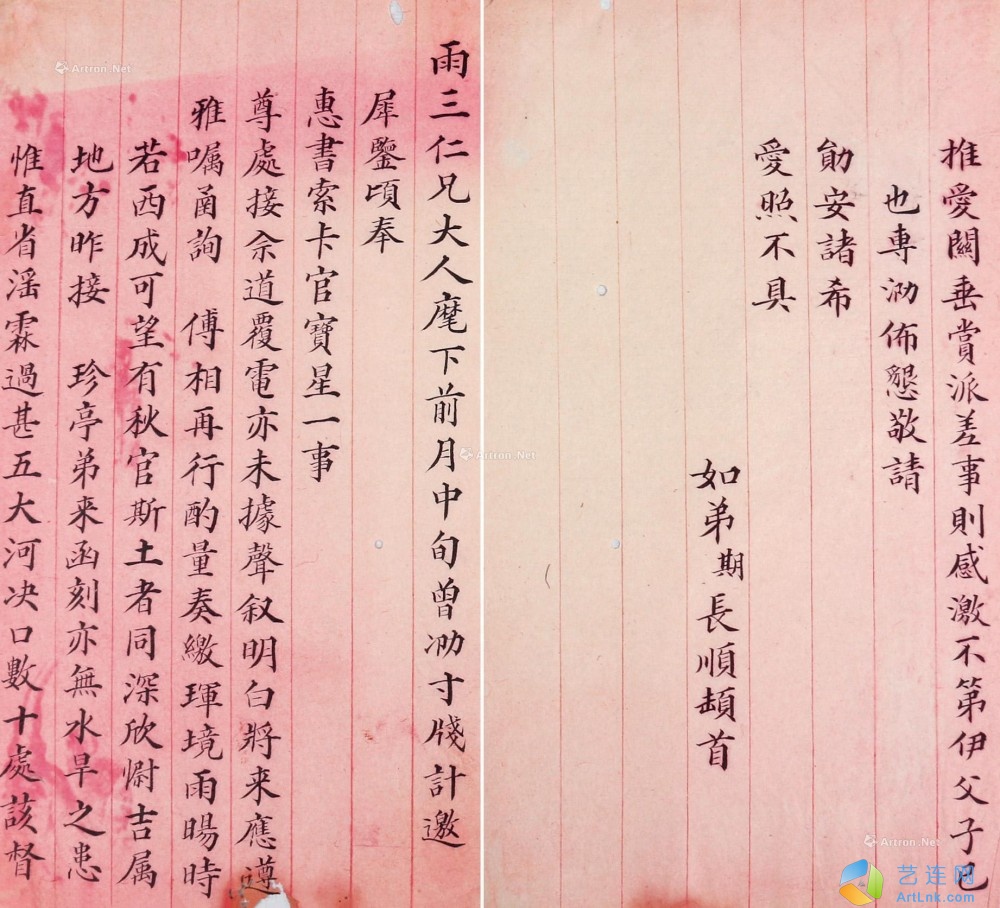 雨三仁兄大人麾下前月中旬曾泐寸牋計邀
犀鑒頃奉
惠書索卡官寶星一事
尊處接佘道覆電亦未據聲叙明白將来應遵
雅囑圅詢 傅相再行酌量奏繳琿境雨暘時
若西成可望有秋官斯土者同深欣慰吉属
地方昨接 珍亭弟来函刻亦無水旱之患
惟直省滛霖過甚五大河决口數十處該督
推愛關垂賞派差事則感激不第伊父子已
也専泐佈懇敬請
勛安諸希
愛照不具
如弟期長順頓首
Artron.Net
Artron.Net
Artron.Net
艺连网
ArtLnk.com